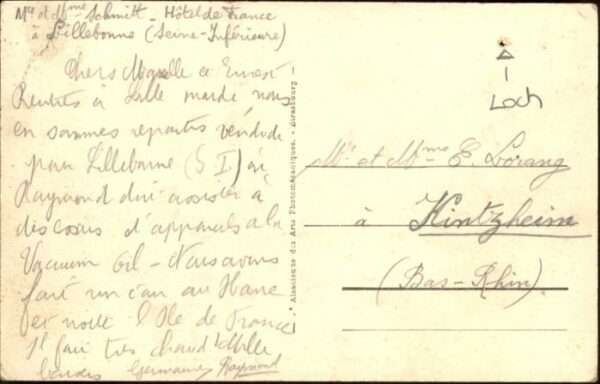 Mr et Mme Schmitt - Hôtel de France
à Lillebonne (Seine-Inférieure)
Chers Magelle et Ernest
Rentrés à Lille mardi nous
en sommes repartis vendredi
pour Lillebonne (S I) où
Raymond doit assister à
des d'appareils à la
Vacuum Oil - Nous avons
fait un au Havre
et visité l'Ile de France
Il fait très chaud Mille
Germaine Raymond
"Alsatienne des Arts Photomécaniques. - Strasbourg
Loch
Mr et Mme E. Lorang
à Kintzheim
(Bas-Rhin)